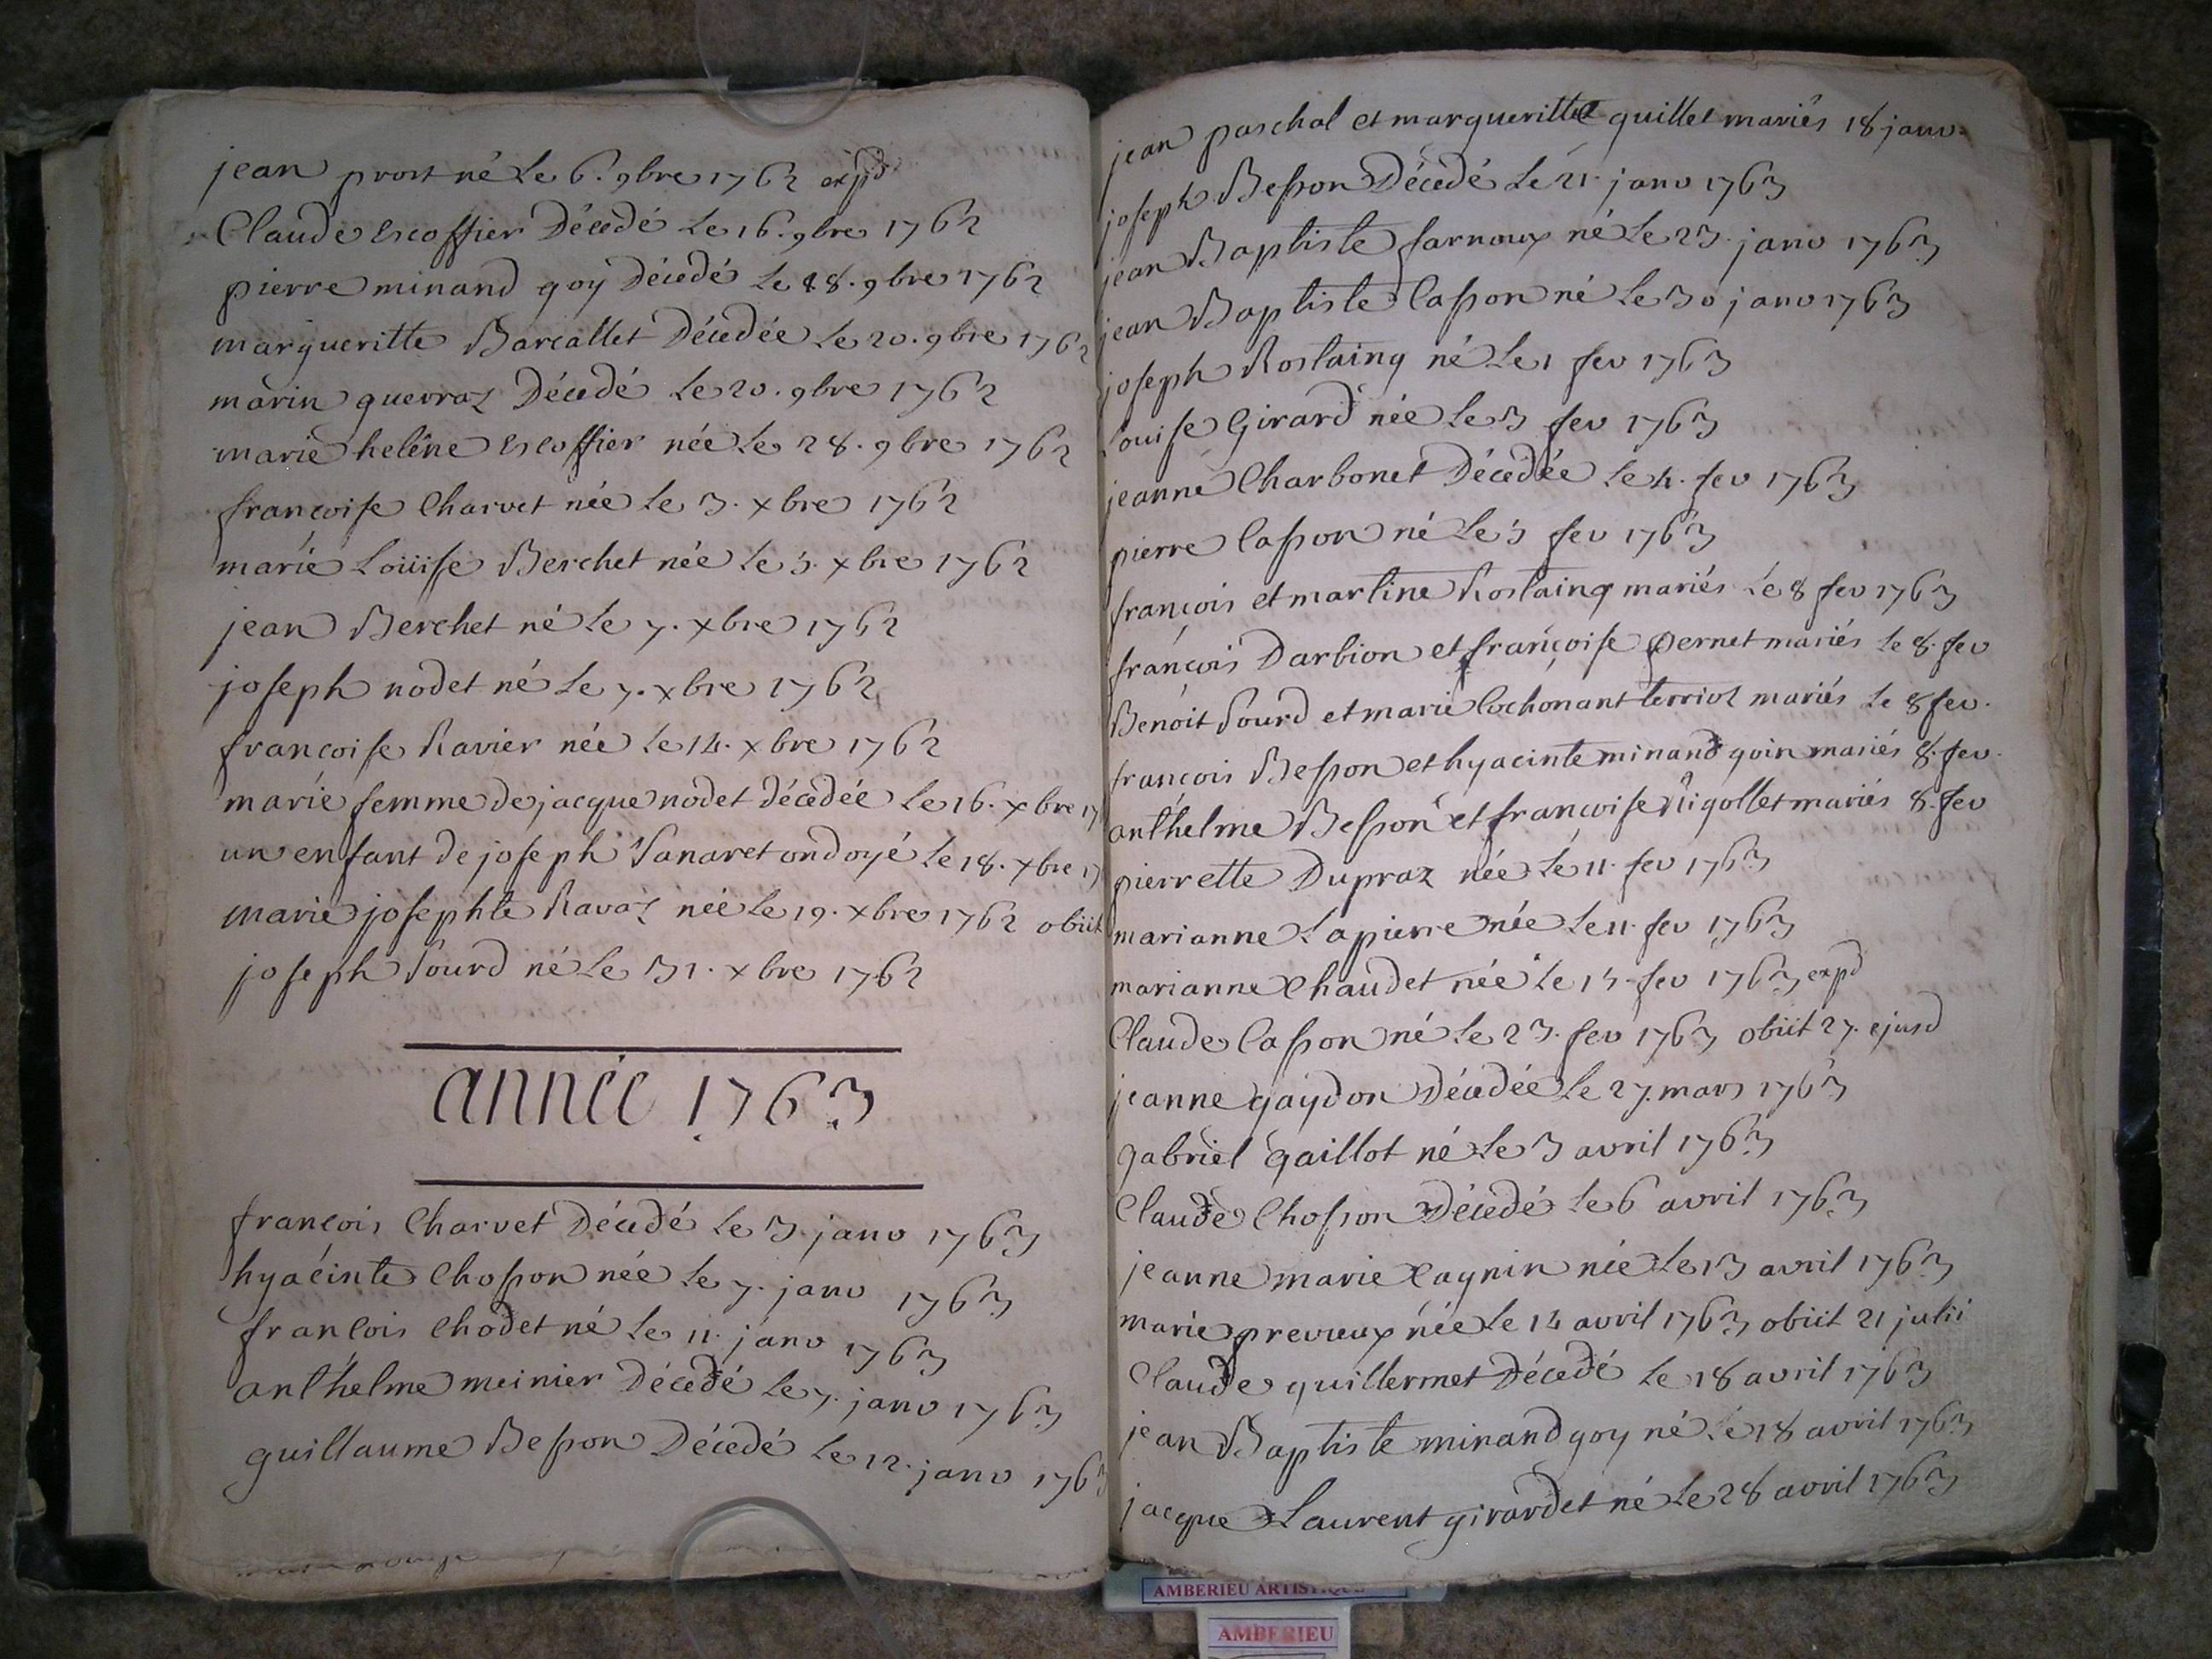 jean prost né Le 6. 9bre 1762 expd
Claude Escoffier Décédé Le 16. 9bre 1762
pierre minand goy Décédé Le 18. 9bre 1762
margueritte Barcallet Décédée Le 20. 9bre 1762
marin guerraz Décédé Le 20. 9bre 1762
marie helêne Escoffier née Le 28. 9bre 1762
françoise Charvet née Le 3. xbre 1762
marie Loüise Berchet née Le 5. xbre 1762
jean Berchet né Le 7. xbre 1762
joseph nodet né Le 7. xbre 1762
françoise Ravier née Le 14. xbre 1762
marie femme de jacque nodet décédée Le 16. xbre 17
un enfant de joseph Sanaret ondoyé Le 18. xbre 17
marie josephte Ravaz née Le 19. xbre 1762 obiit
joseph Sourd né Le 31. xbre 1762
année 1763
françois Charvet Décédé Le 3. janv 1763
hyacinte Chosson née Le 7. janv 1763
françois Chodet né Le 11. janv 1763
anthelme meinier Décédé Le 7. janv 1763
guillaume Besson Décédé Le 12. janv 1763
jean paschal et margueritte guillet mariés 18 janv.
joseph Besson Décédé Le 21. janv 1763
jean Baptiste farnoux né Le 23. janv 1763
jean Baptiste Casson né Le 30 janv 1763
joseph Rostaing né Le 1 fev 1763
Louise Girard née Le 3 fev 1763
jeanne Charbonet Décédée Le 4. fev 1763
pierre Casson né Le 5 fev 1763
françois et martine Rostaing mariés Le 8 fev 1763
françois Darbion et françoise pernet mariés Le 8. fev
Benoit Sourd et marie Cochonant terrioz mariés Le 8 fev.
françois Besson et hyacinte minand goin mariés 8. fev.
anthelme Besson et françoise Rigollet mariés 8. fev
pierrette Dupraz née Le 11. fev 1763
marianne Lapierre née Le 11. fev 1763
marianne Chaudet née Le 15. fev 1763 expd
Claude Casson né Le 23. fev 1763 obiit 27. ejusd
jeanne gaydon Décédée Le 27. mars 1763
gabriel gaillot né Le 3 avril 1763
Claude Chosson Décédé Le 6 avril 1763
jeanne marie Cagnin née Le 13 avril 1763
marie previeux née Le 14 avril 1763 obiit 21 julii
Claude guillermet Décédé Le 18 avril 1763
jean Baptiste minand goy né Le 18 avril 1763
jacque Laurent girardet né Le 28 avril 1763
AMBERIEU ARTISTIQUE
AMBERIEU